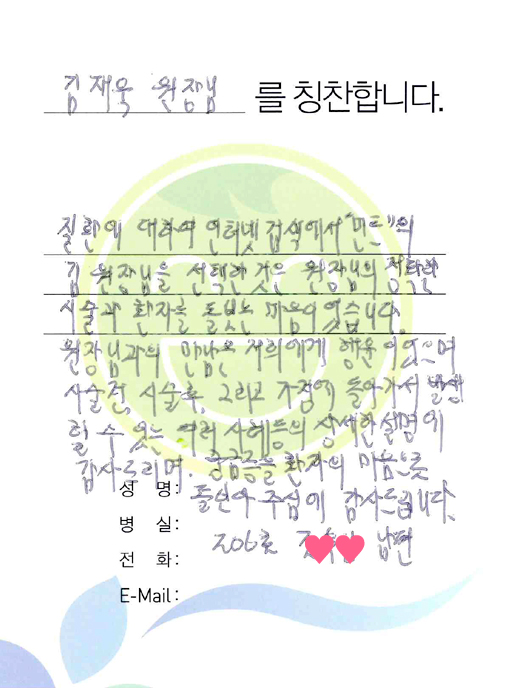 김재욱 원장님 를 칭찬합니다.
질환에 대하여 인터넷 검색에서 "민트"의
김 원장님을 선택한 것은 원장님의 정확한
시술과 환자를 돌보는 마음이었습니다.
원장님과의 만남은 저희에게 행운이었으며
시술전, 시술후, 그리고 가정에 돌아가서 발생
할 수 있는 여러 사례등의 상세한 설명에
감사드리며. 궁금증을 환자의 마음으로
돌보아 주심에 감사드립니다.
성 명:
병 실:
206호 남편
전 화:
E-Mail: